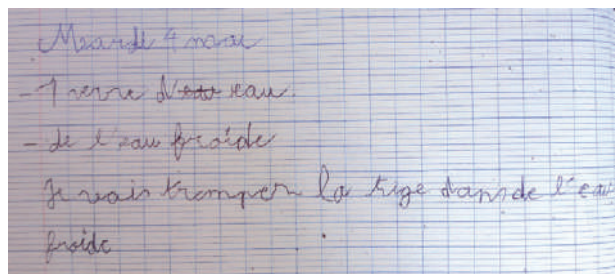 Mardi 4 mai
- 1 verre d'eau.
- de l'eau froide
Je vais tremper la tige dans de l'eau
froide